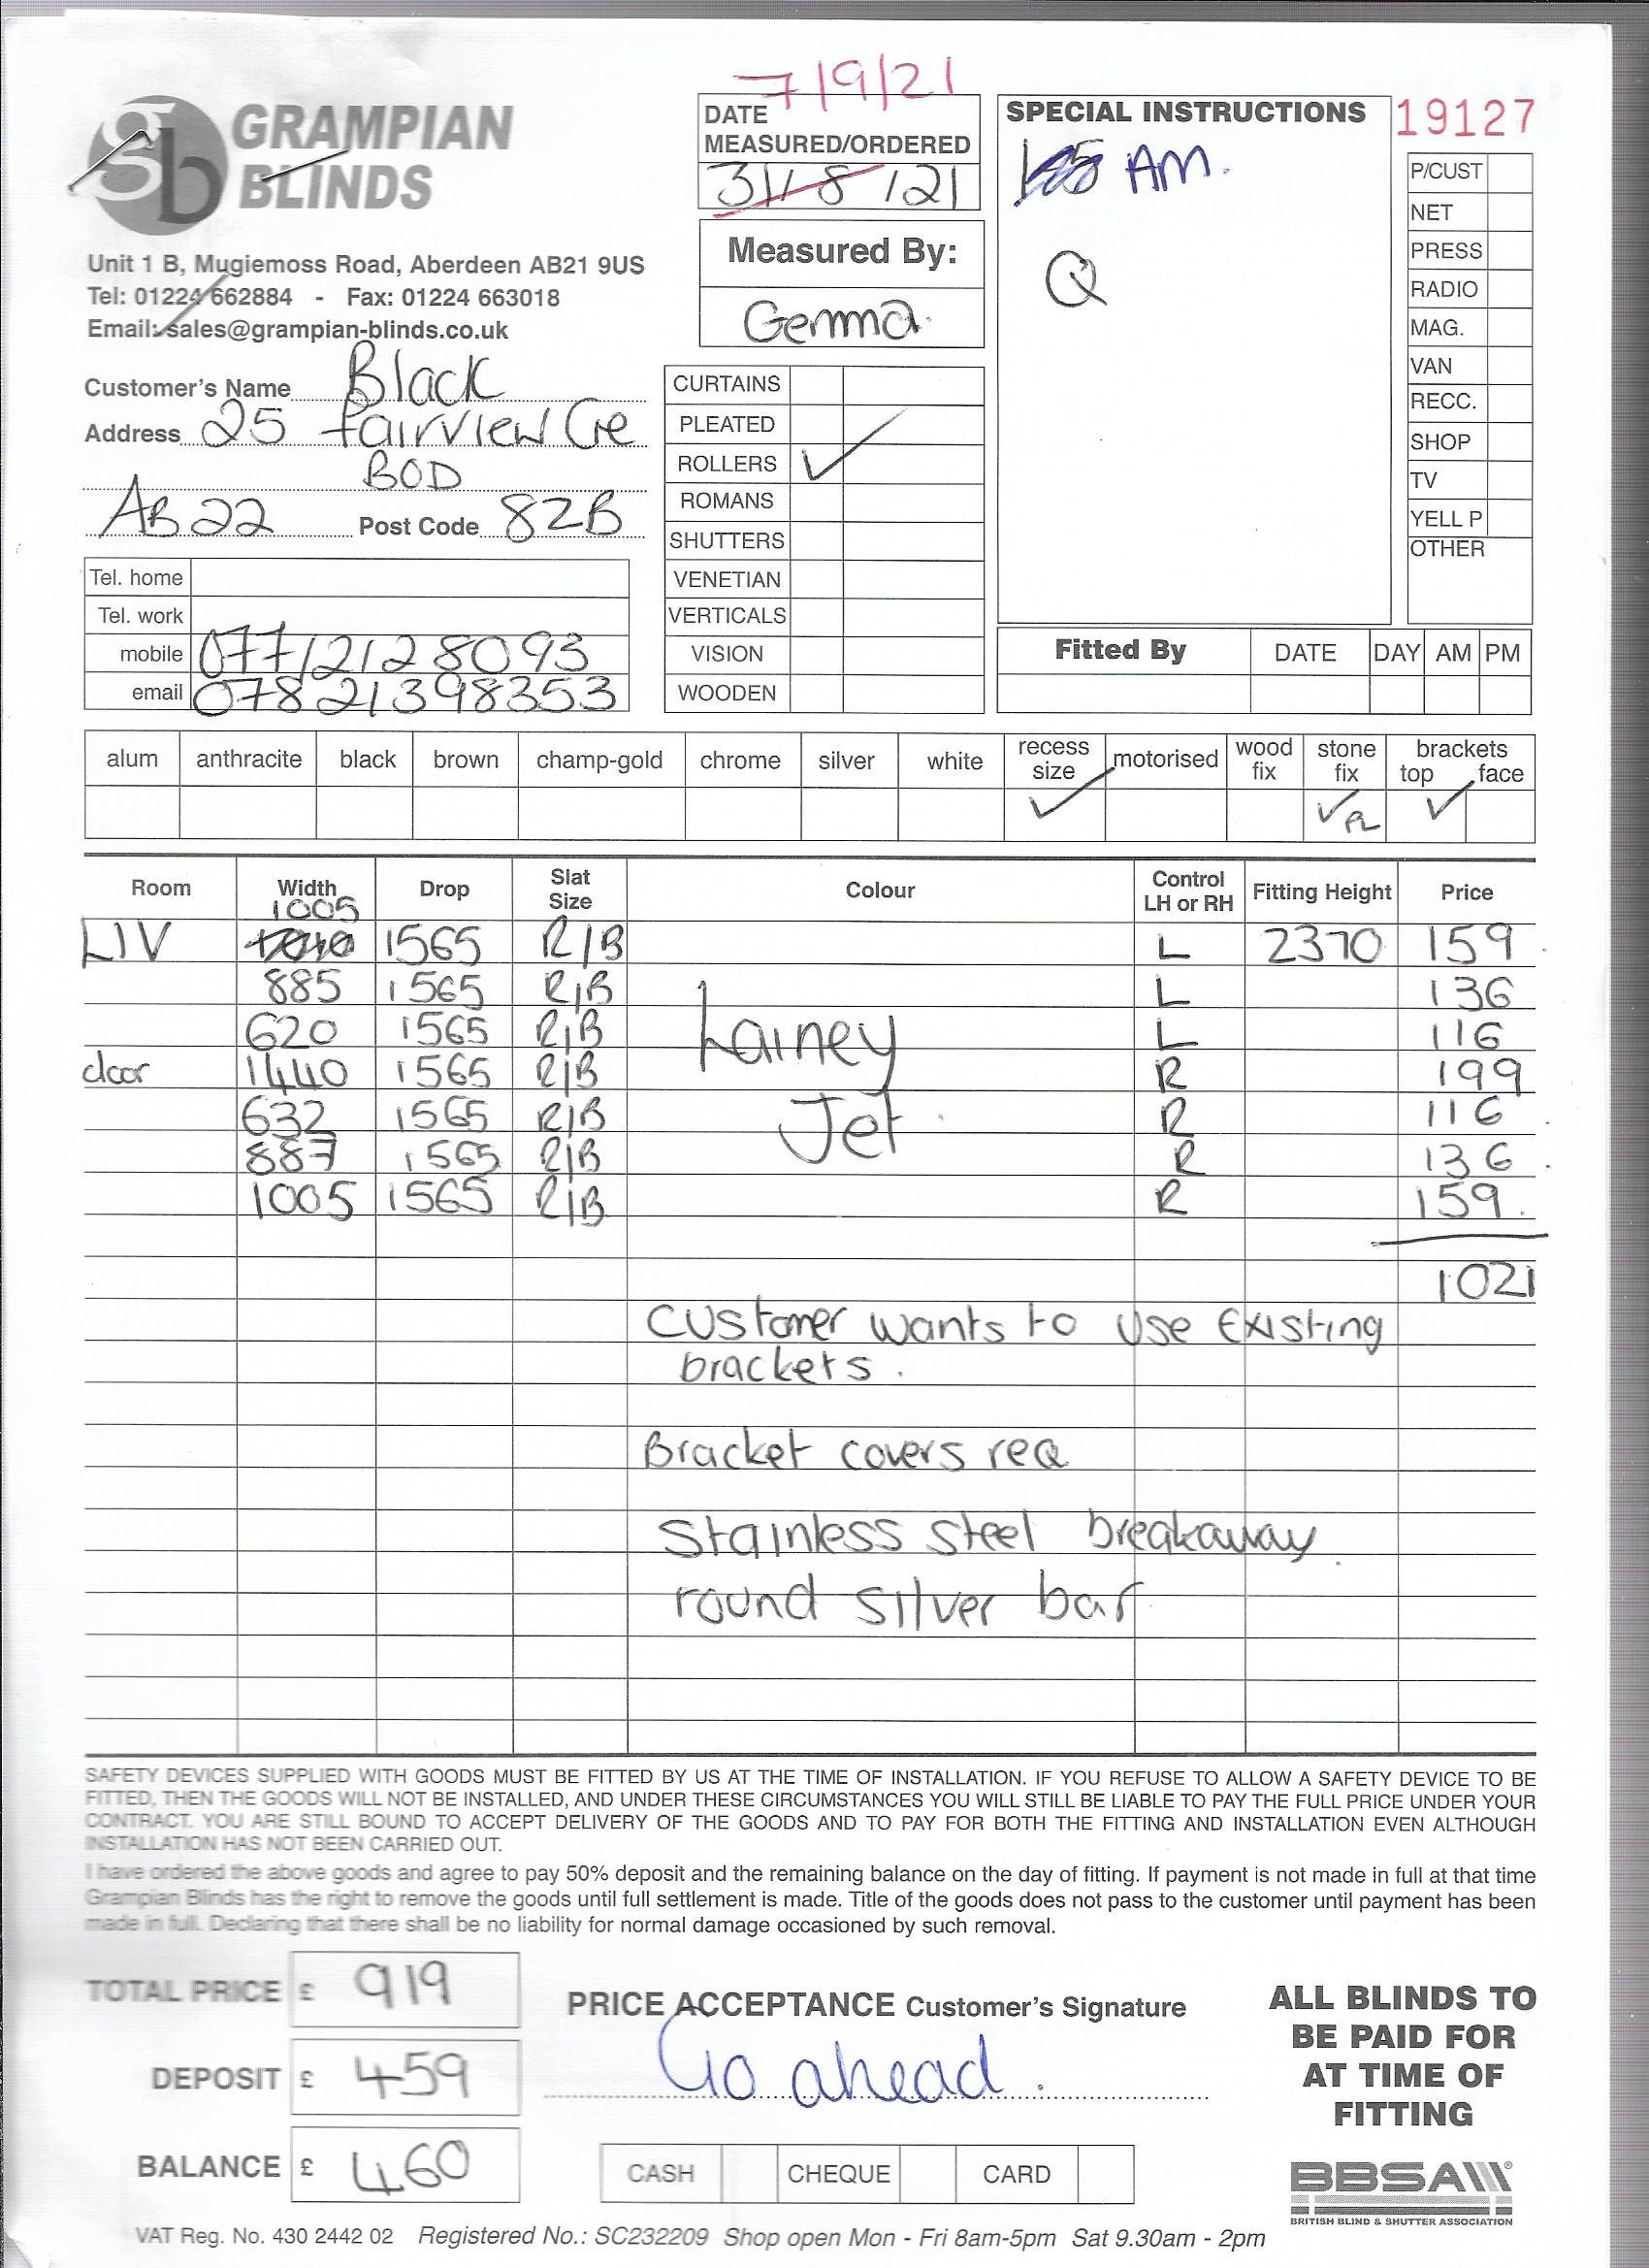 7/9/21
GRAMPIAN
BLINDS
Unit 1 B, Mugiemoss Road, Aberdeen AB21 9US
Tel: 01224 662884 - Fax: 01224 663018
Email: sales@grampian-blinds.co.uk
DATE
MEASURED/ORDERED
31/8/21
Measured By:
Gemma
SPECIAL INSTRUCTIONS
AM.
Q
19127
P/CUST
NET
PRESS
RADIO
MAG.
VAN
RECC.
SHOP
TV
YELL P
OTHER
Customer's Name Black
Address 25 Fairview Cre
BOD
AB22 Post Code 8ZB
Tel. home
Tel. work
mobile 07712128093
email 07821398353
CURTAINS
PLEATED
ROLLERS ✓
ROMANS
SHUTTERS
VENETIAN
VERTICALS
VISION
WOODEN
Fitted By DATE DAY AM PM
alum anthracite black brown champ-gold chrome silver white recess size motorised wood fix stone fix brackets top face
✓ ✓ PL ✓
Room Width Drop Slat Size Colour Control LH or RH Fitting Height Price
LIV 1005 1565 R/B L 2370 159
885 1565 R/B L 136
620 1565 R/B Lainey L 116
door 1440 1565 R/B R 199
632 1565 R/B Jet R 116
887 1565 R/B R 136
1005 1565 R/B R 159.
1021
Customer wants to use Existing
brackets.
Bracket covers req
Stainless steel breakaway
round silver bar
SAFETY DEVICES SUPPLIED WITH GOODS MUST BE FITTED BY US AT THE TIME OF INSTALLATION. IF YOU REFUSE TO ALLOW A SAFETY DEVICE TO BE
FITTED, THEN THE GOODS WILL NOT BE INSTALLED, AND UNDER THESE CIRCUMSTANCES YOU WILL STILL BE LIABLE TO PAY THE FULL PRICE UNDER YOUR
CONTRACT. YOU ARE STILL BOUND TO ACCEPT DELIVERY OF THE GOODS AND TO PAY FOR BOTH THE FITTING AND INSTALLATION EVEN ALTHOUGH
INSTALLATION HAS NOT BEEN CARRIED OUT.
I have ordered the above goods and agree to pay 50% deposit and the remaining balance on the day of fitting. If payment is not made in full at that time
Grampian Blinds has the right to remove the goods until full settlement is made. Title of the goods does not pass to the customer until payment has been
made in full. Declaring that there shall be no liability for normal damage occasioned by such removal.
TOTAL PRICE £ 919
DEPOSIT £ 459
BALANCE £ 460
PRICE ACCEPTANCE Customer's Signature
Go ahead.
CASH CHEQUE CARD
ALL BLINDS TO
BE PAID FOR
AT TIME OF
FITTING
BBSA
BRITISH BLIND & SHUTTER ASSOCIATION
VAT Reg. No. 430 2442 02 Registered No.: SC232209 Shop open Mon - Fri 8am-5pm Sat 9.30am - 2pm